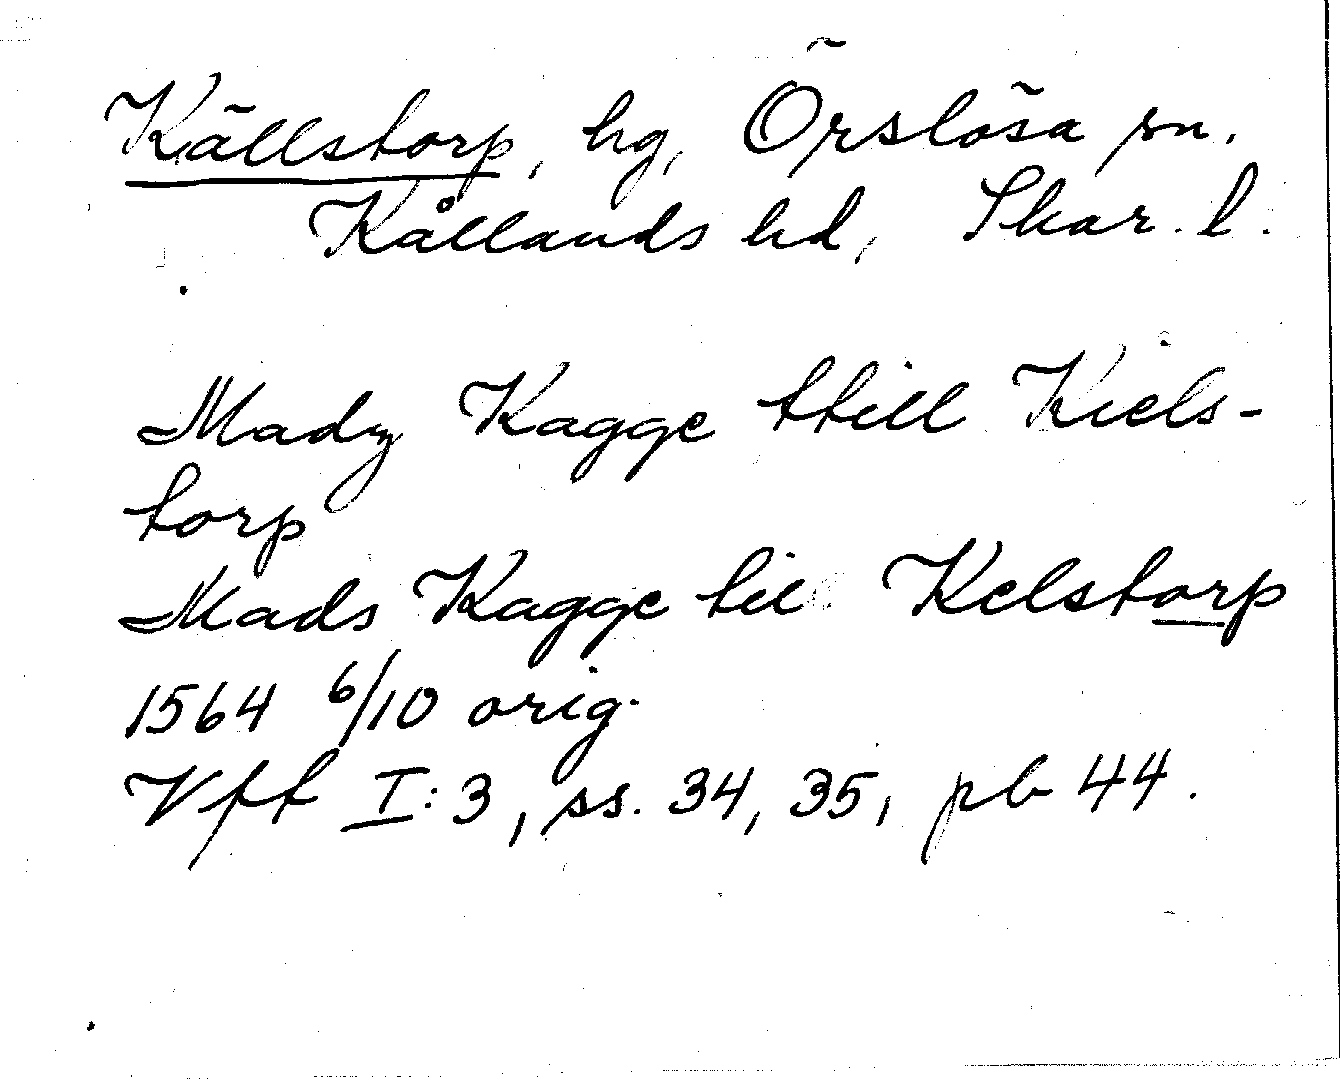 Källstorp, hg, Örslösa sn.
Kållands hd, Skar. l.
Madz Kagge thill Kiels-
torp
Mads Kagge til Kelstorp
1564 6/10 orig.
Vff I:3, ss. 34, 35, pb 44.